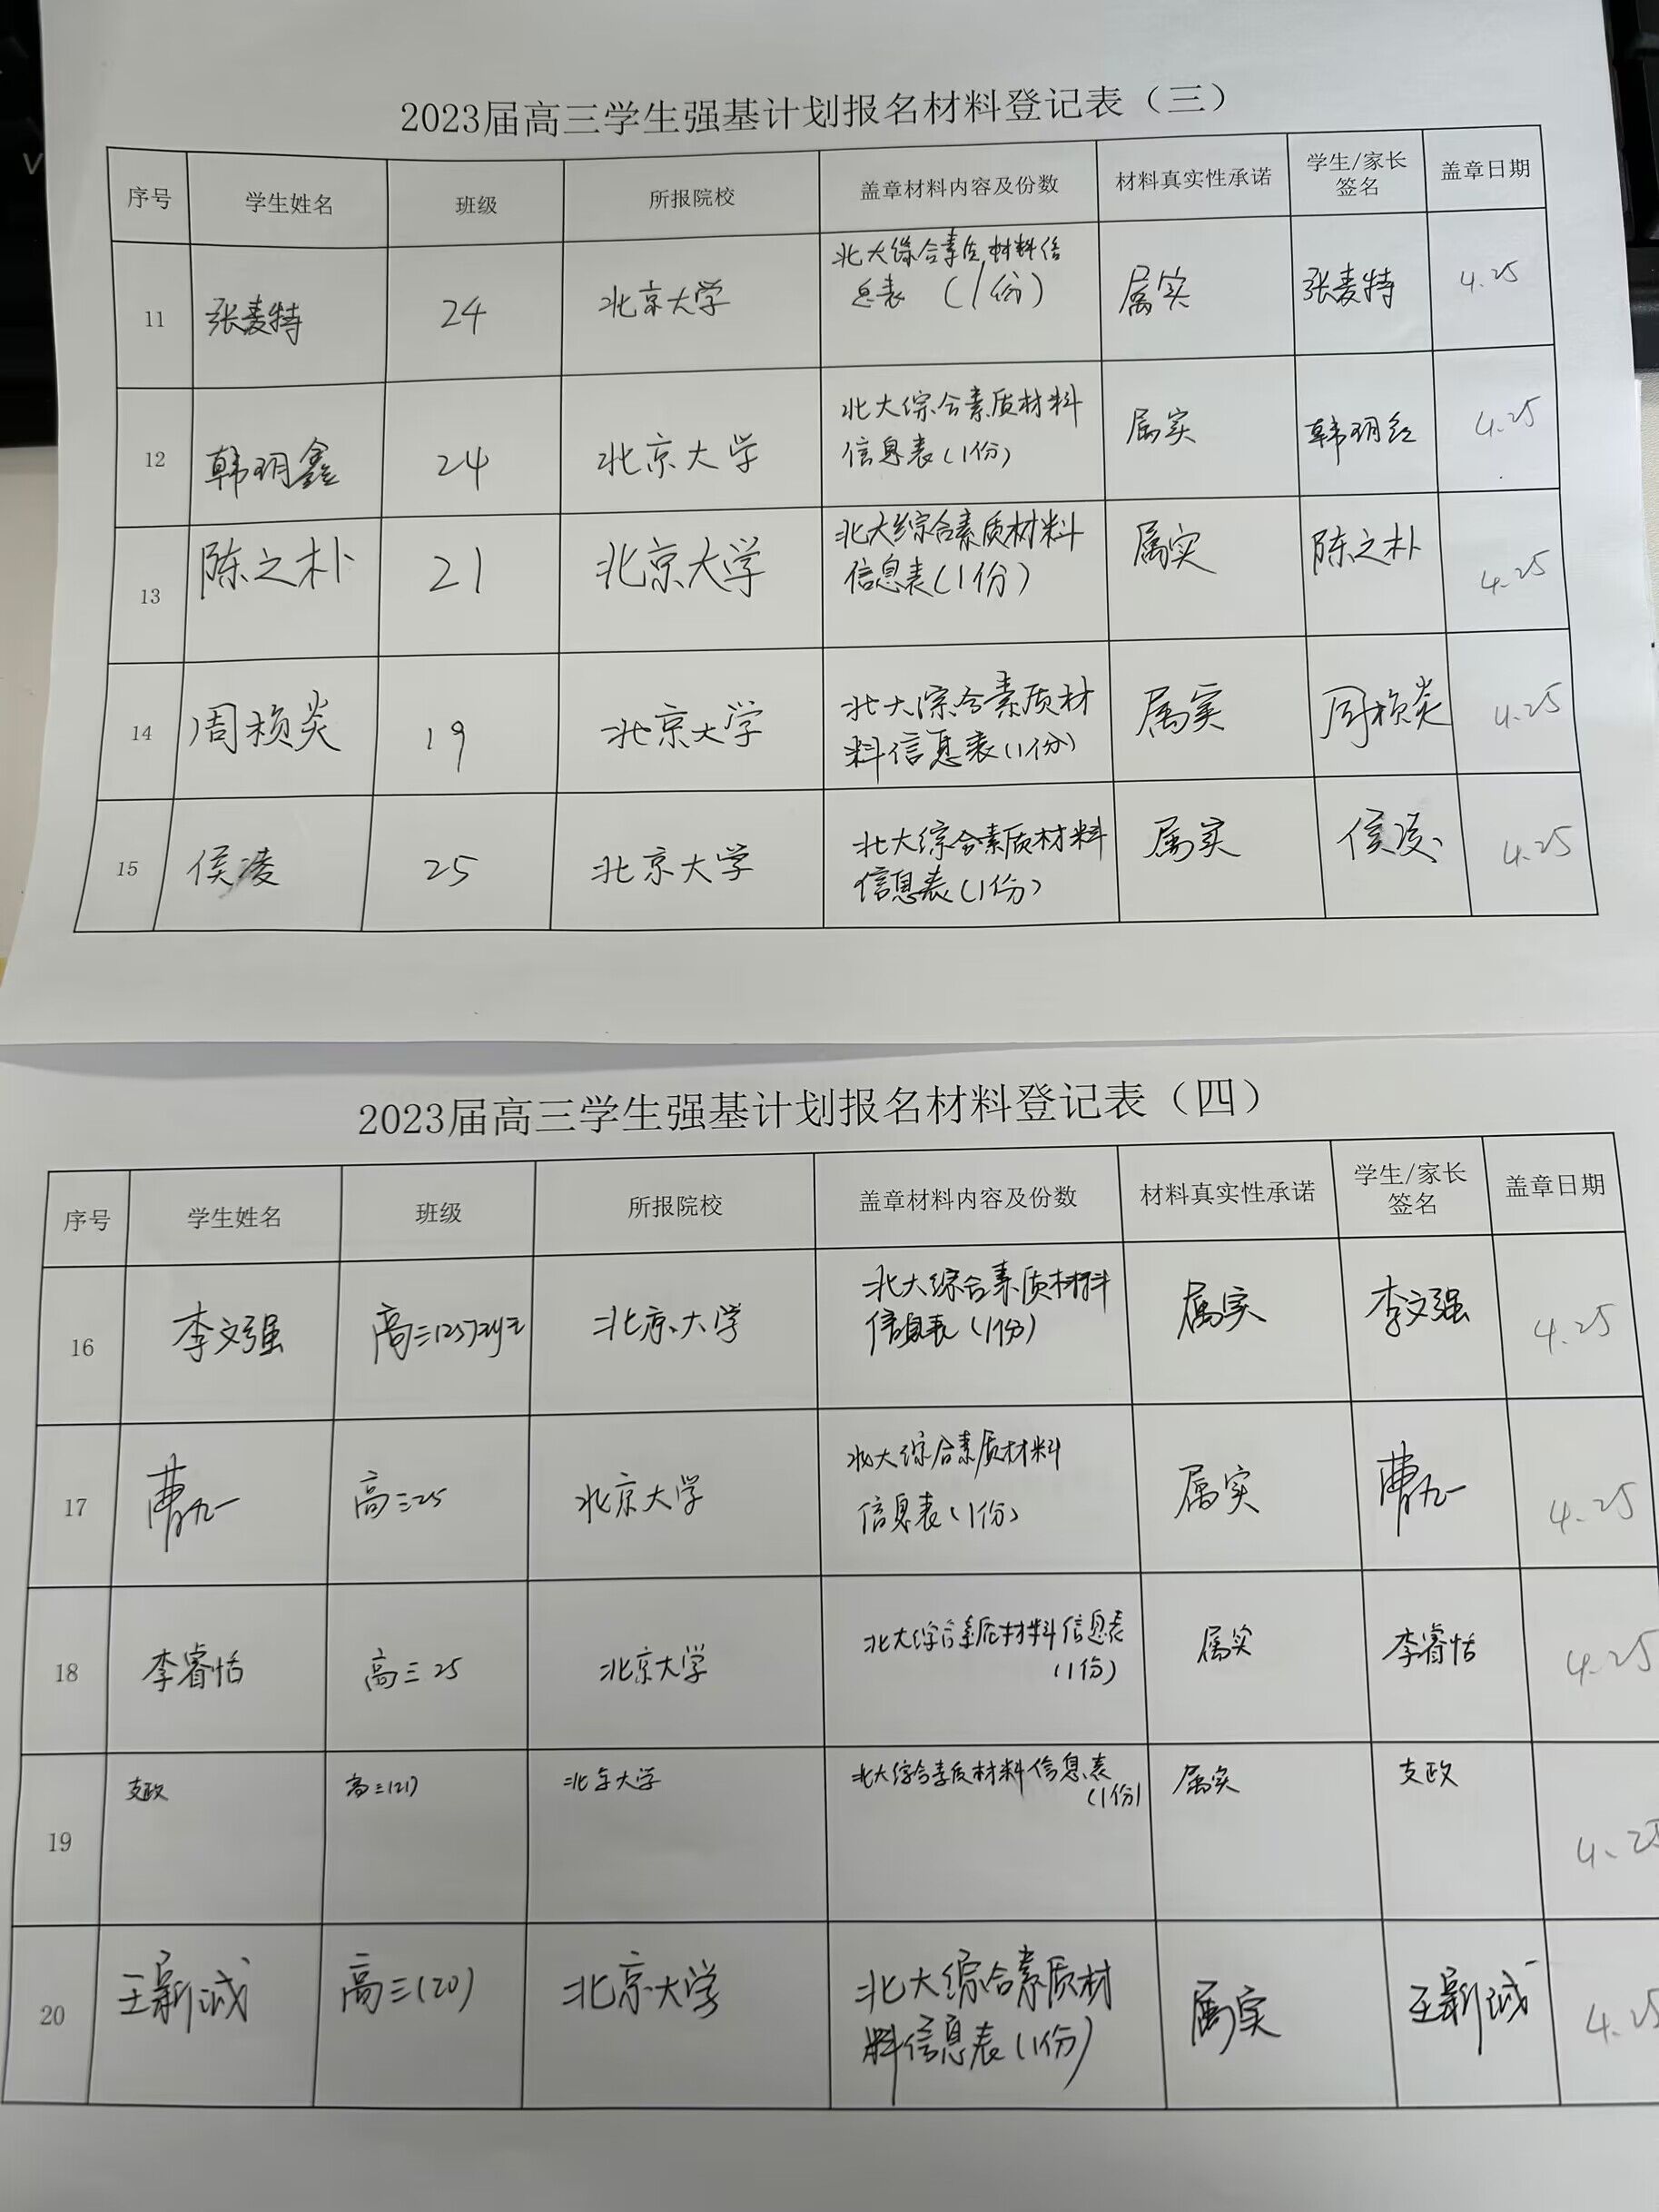 2023届高三学生强基计划报名材料登记表（三）
序号 学生姓名 班级 所报院校 盖章材料内容及份数 材料真实性承诺 学生/家长 盖章日期
签名
11 张麦特 24 北京大学 北大综合素质材料信 属实 张麦特 4.25
息表 (1份)
12 韩玥鑫 24 北京大学 北大综合素质材料 属实 韩玥 4.25
信息表(1份)
13 陈之朴 21 北京大学 北大综合素质材料 属实 陈之朴 4.25
信息表(1份)
14 周桢炎 19 北京大学 北大综合素质材 属实 周桢炎 4.25
料信息表(1份)
15 侯凌 25 北京大学 北大综合素质材料 属实 侯凌 4.25
信息表(1份)
2023届高三学生强基计划报名材料登记表（四）
序号 学生姓名 班级 所报院校 盖章材料内容及份数 材料真实性承诺 学生/家长 盖章日期
签名
16 李文强 高三(25) 北京大学 北大综合素质材料 属实 李文强 4.25
信息表(1份)
17 曹九一 高三25 北京大学 北大综合素质材料 属实 曹九一 4.25
信息表(1份)
18 李睿恬 高三25 北京大学 北大综合素质材料信息表 属实 李睿恬 4.25
(1份)
19 支政 高三(21) 北京大学 北大综合素质材料信息表 属实 支政 4.25
(1份)
20 王新诚 高三(20) 北京大学 北大综合素质材 属实 王新诚 4.25
料信息表(1份)